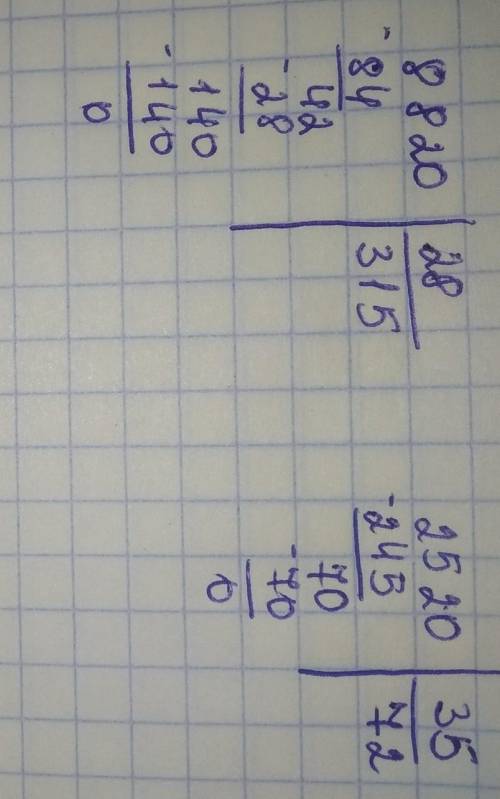 8820 28
-84 315
42
-28
140
-140
0
2520 35
-245 72
70
-70
0